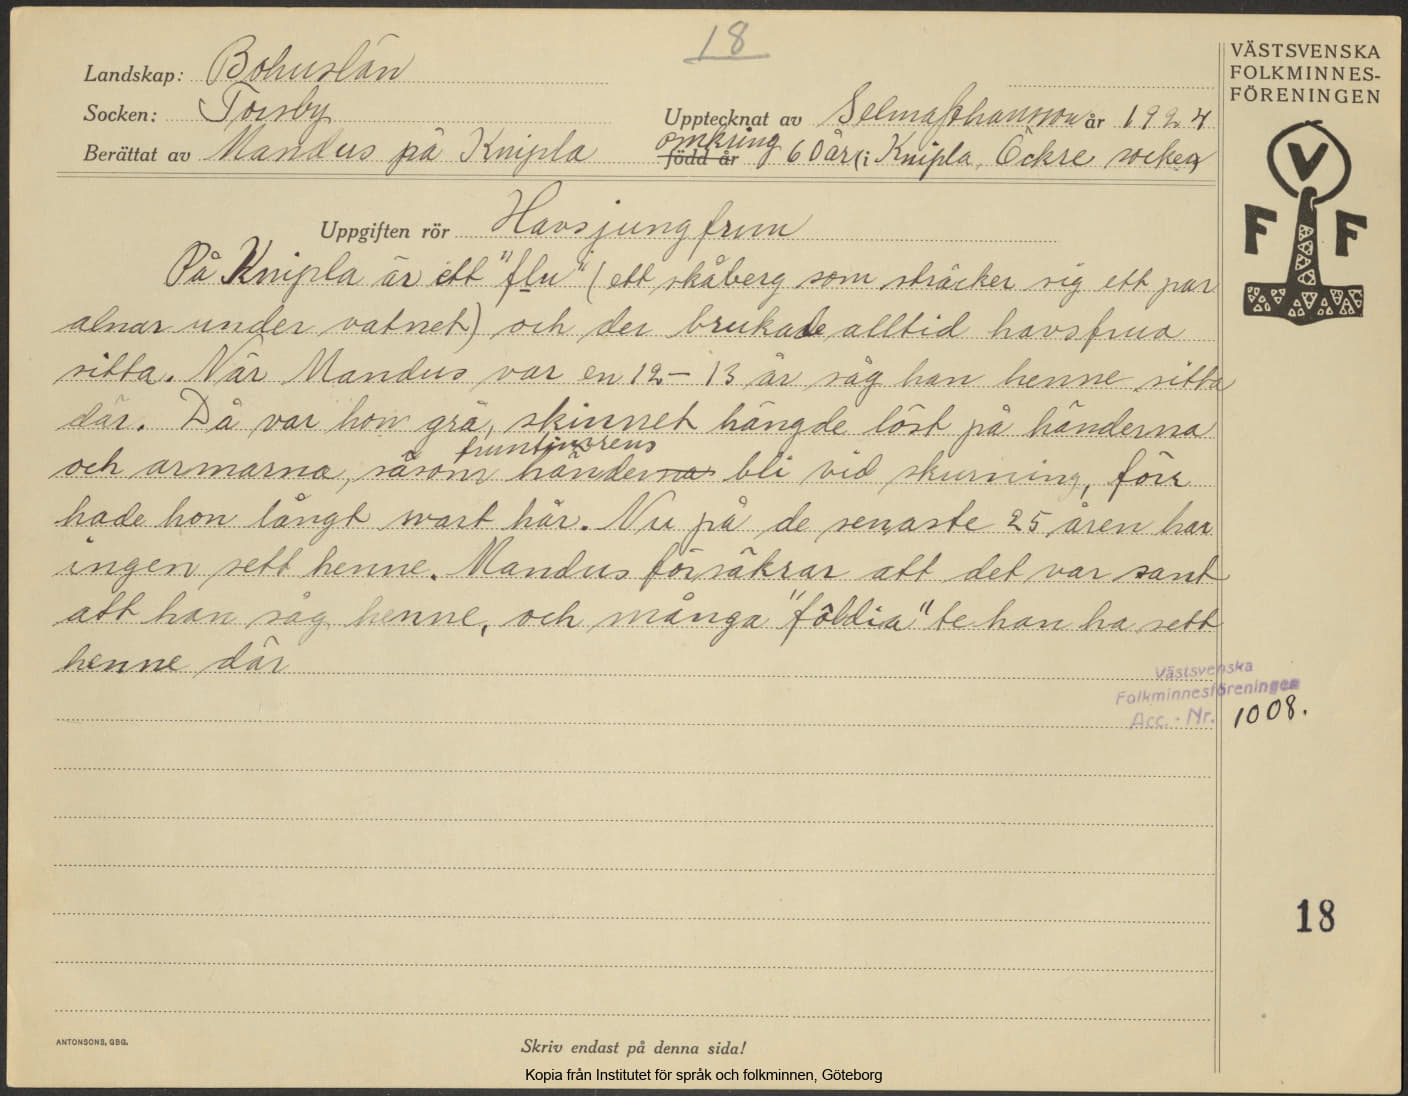 18
VÄSTSVENSKA
FOLKMINNES-
FÖRENINGEN
Landskap: Bohuslän
Socken: Torsby
Upptecknat av Selma Johansson år 1924
Berättat av Mandus på Knipla
omkring
född år 60 år (i Knipla, Öckre socken)
V
F F
Uppgiften rör Havsjungfrun
På Knipla är ett "flu" (ett skåberg som sträcker sig ett par
alnar under vatnet) och der brukade alltid havsfrua
sitta. När Mandus var en 12-13 år såg han henne sitta
där. Då var hon grå, skinnet hängde löst på händerna
fruntimrens
och armarna, såsom händerna bli vid skurning, förr
hade hon långt svart hår. Nu på de senaste 25 åren har
ingen sett henne. Mandus försäkrar att det var sant
att han såg henne, och många "föbdia" te han ha sett
henne där
Västsvenska
Folkminnesföreningen
Acc. - Nr. 1008.
18
ANTONSONS, GBG.
Skriv endast på denna sida!
Kopia från Institutet för språk och folkminnen, Göteborg